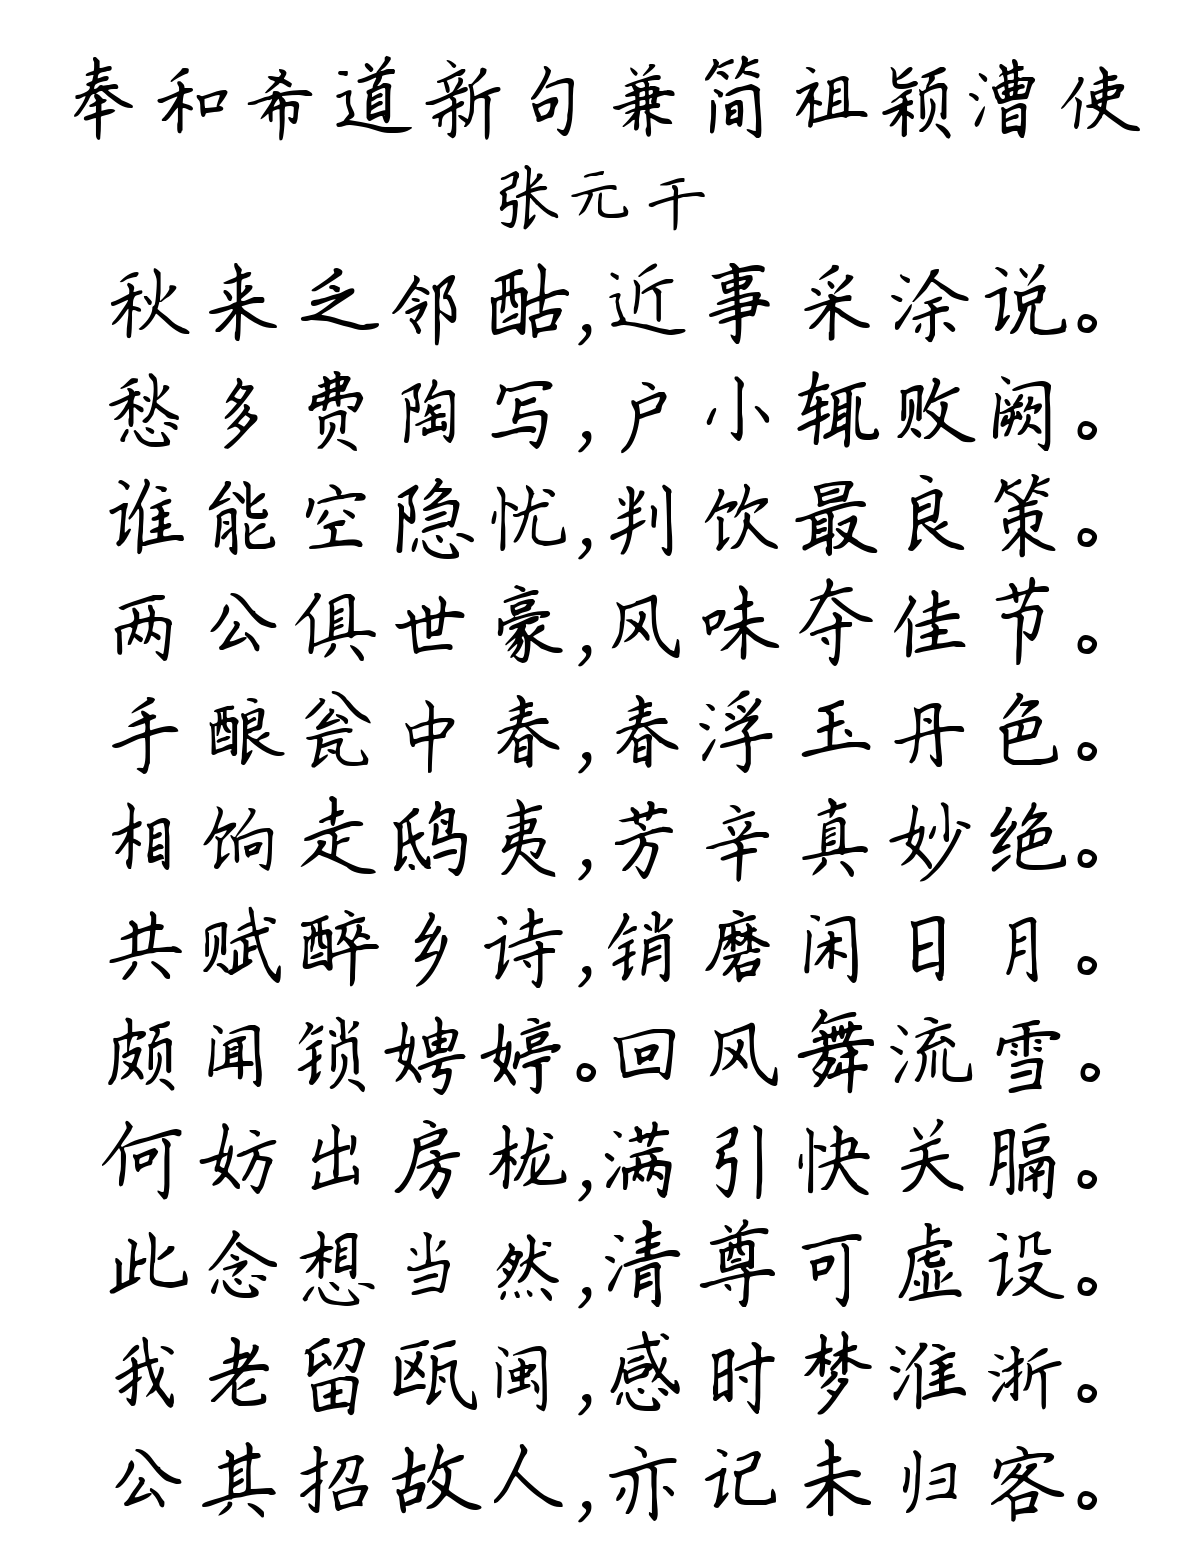 奉和希道新句兼简祖颖漕使
张元干
秋来乏邻酤,近事采涂说。
愁多费陶写,户小辄败阙。
谁能空隐忧,判饮最良策。
两公俱世豪,风味夺佳节。
手酿瓮中春,春浮玉丹色。
相饷走鸱夷,芳辛真妙绝。
共赋醉乡诗,销磨闲日月。
颇闻锁娉婷。回风舞流雪。
何妨出房栊,满引快关膈。
此念想当然,清尊可虚设。
我老留瓯闽,感时梦淮浙。
公其招故人,亦记未归客。